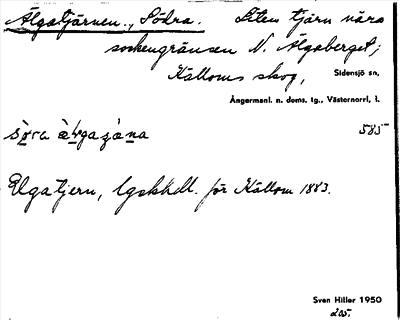 Älgatjärnen, Södra. Liten tjärn nära
sockengränsen N. Älgaberget;
Källoms skog,
Sidensjö sn,
Ångermanl. n. doms. tg., Västernorrl, l.
585
Elgatjern, lgskhdl. för Källom 1883.
Sven Hiller 1950
205.